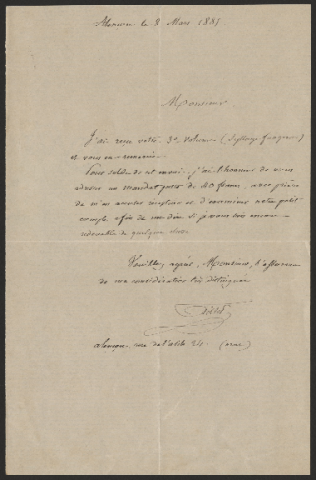 Alençon le 8 Mars 1885
Monsieur
J'ai reçu votre 3e volume
et vous en remercie.
Pour solde de cet envoi, j'ai l'honneur de vous
adresser un mandat poste de 40 francs, avec prière
de m'en accuser réception et d'examiner notre petit
compte afin de me dire si je vous suis encore
redevable de quelque chose.
Veuillez agréer, Monsieur, l'assurance
de ma considération très distinguée
alençon, rue de (orne)